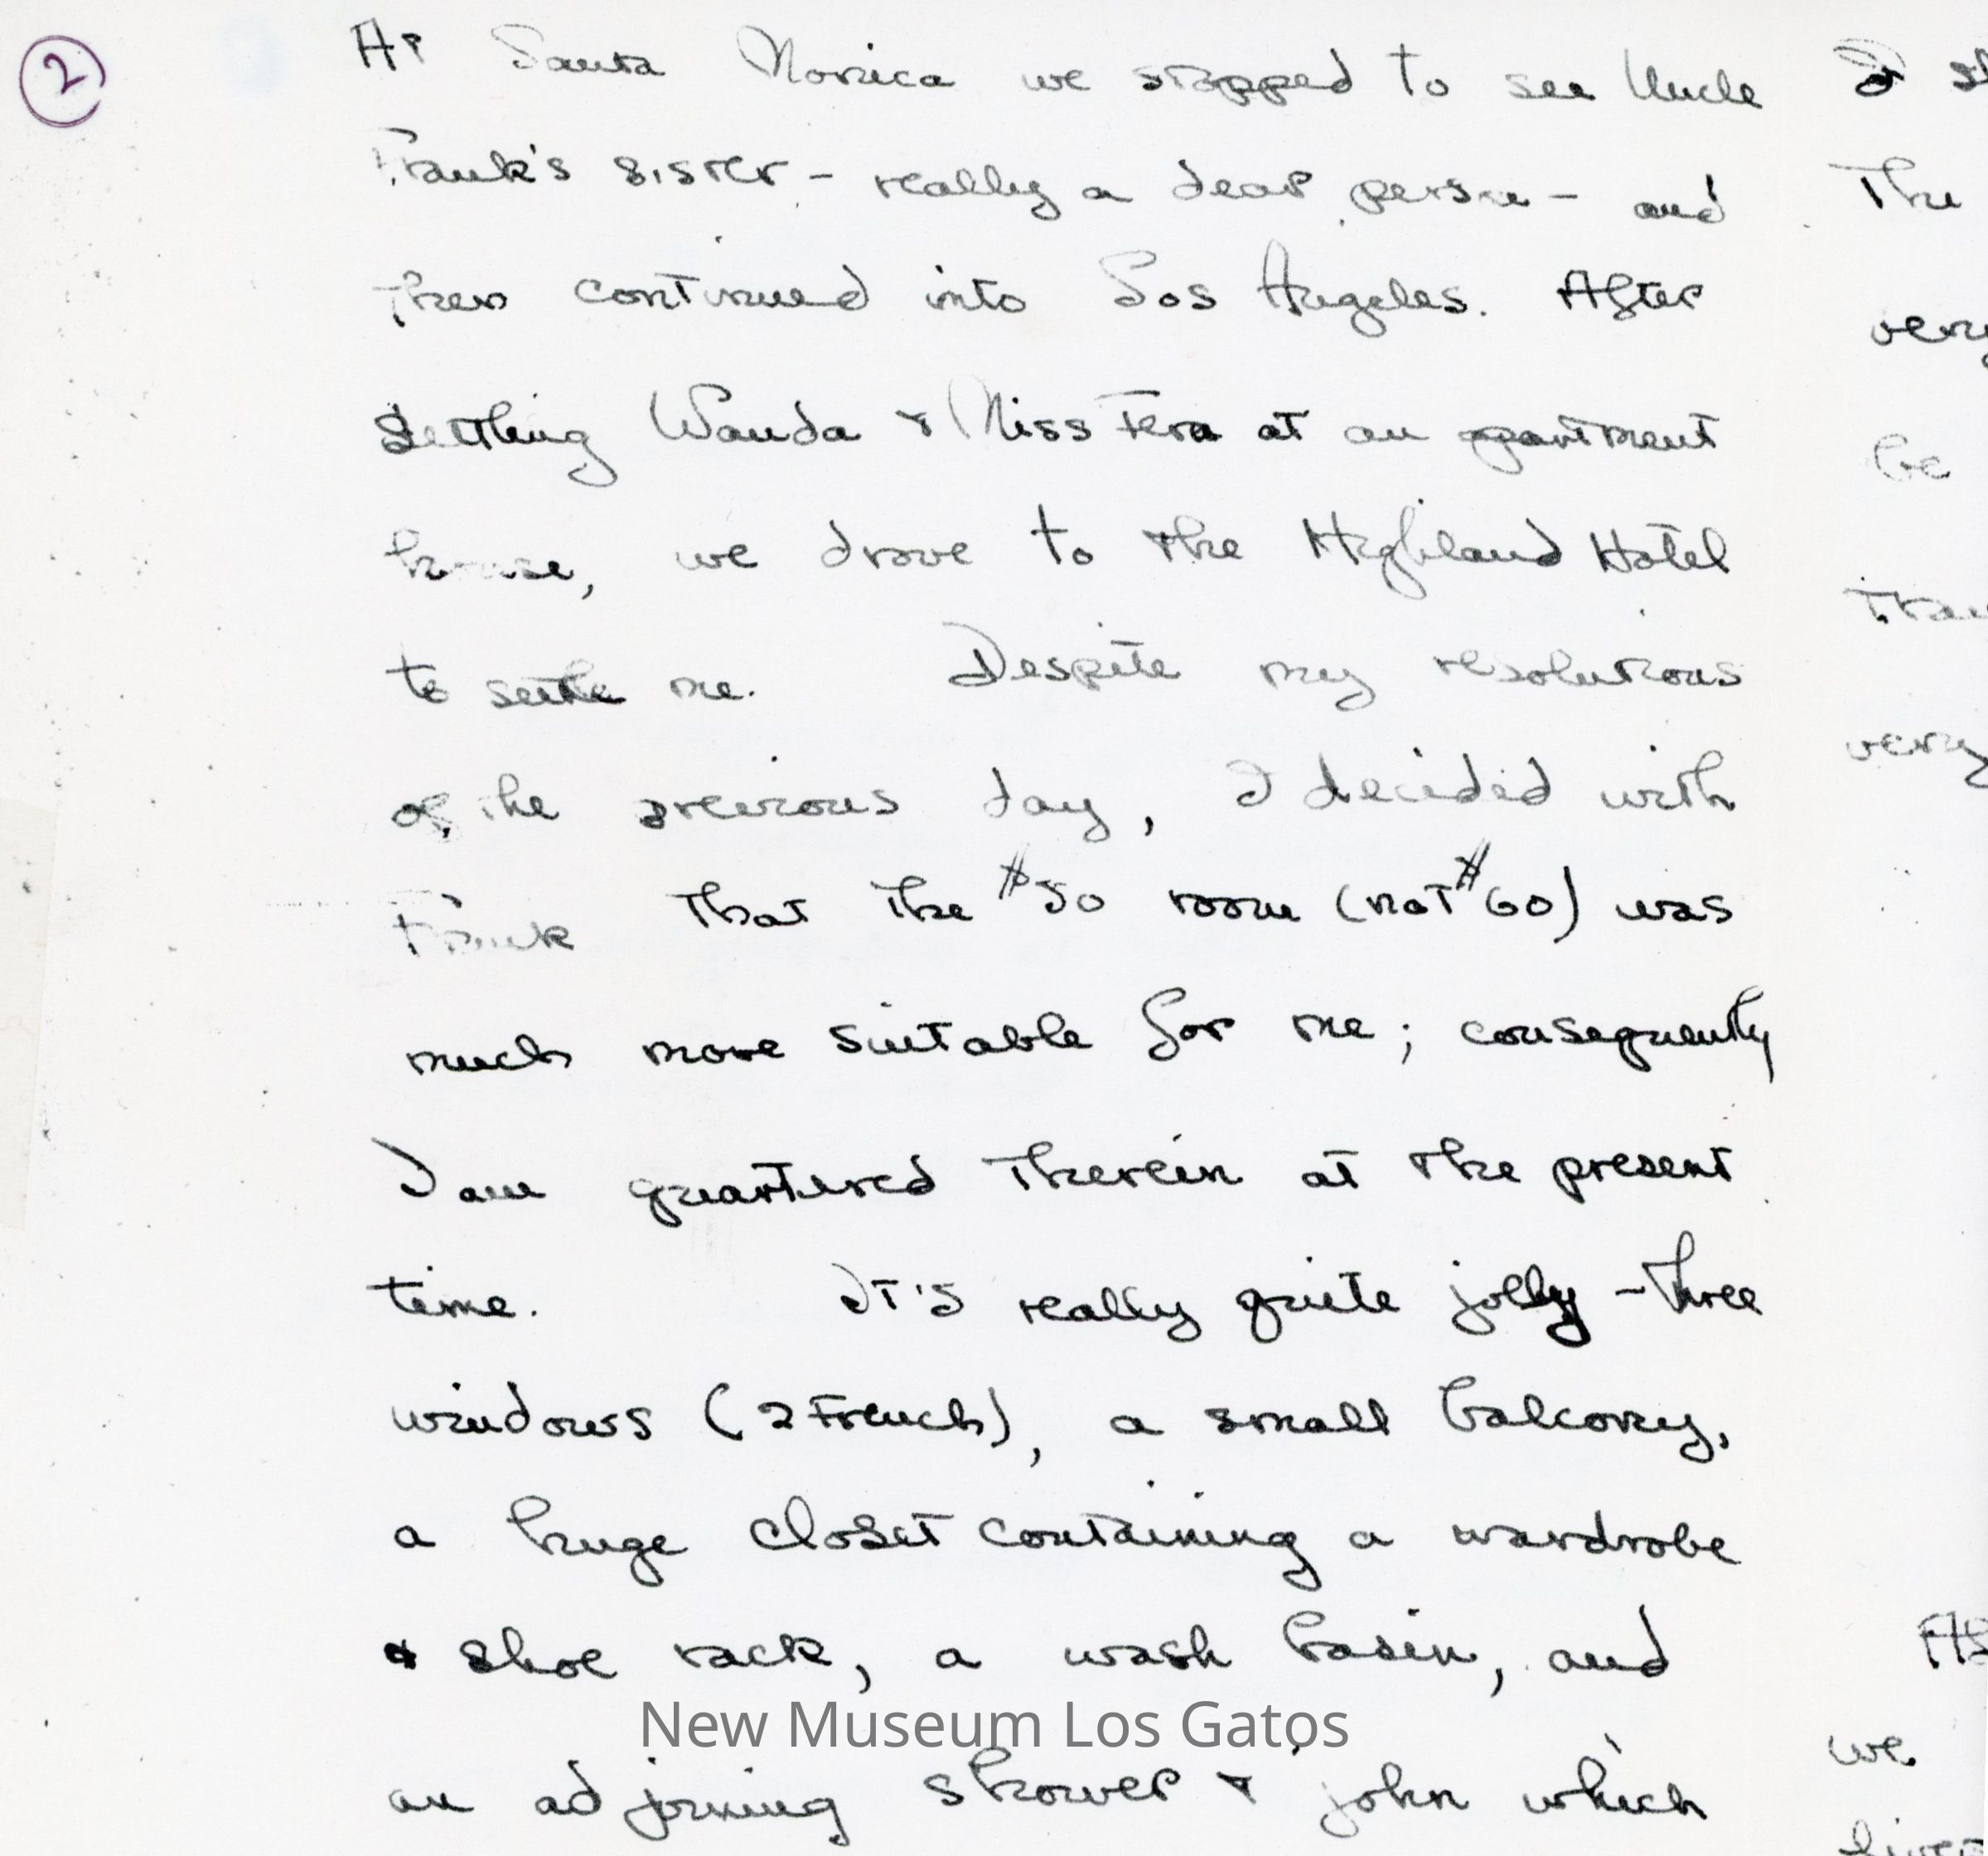 2
At Santa Monica we stopped to see Uncle
Frank's sister - really a dear person - and
then continued into Los Angeles. After
settling Wanda & Miss Fera at an apartment
house, we drove to the Highland Hotel
to settle me. Despite my resolutions
of the previous day, I decided with
Frank that the $50 room (not $60) was
much more suitable for me; consequently
I am quartered therein at the present
time. It's really quite jolly - three
windows (2 French), a small balcony,
a huge closet containing a wardrobe
& shoe rack, a wash basin, and
New Museum Los Gatos
an adjoining shower & john which
The
very
be
very
As
we